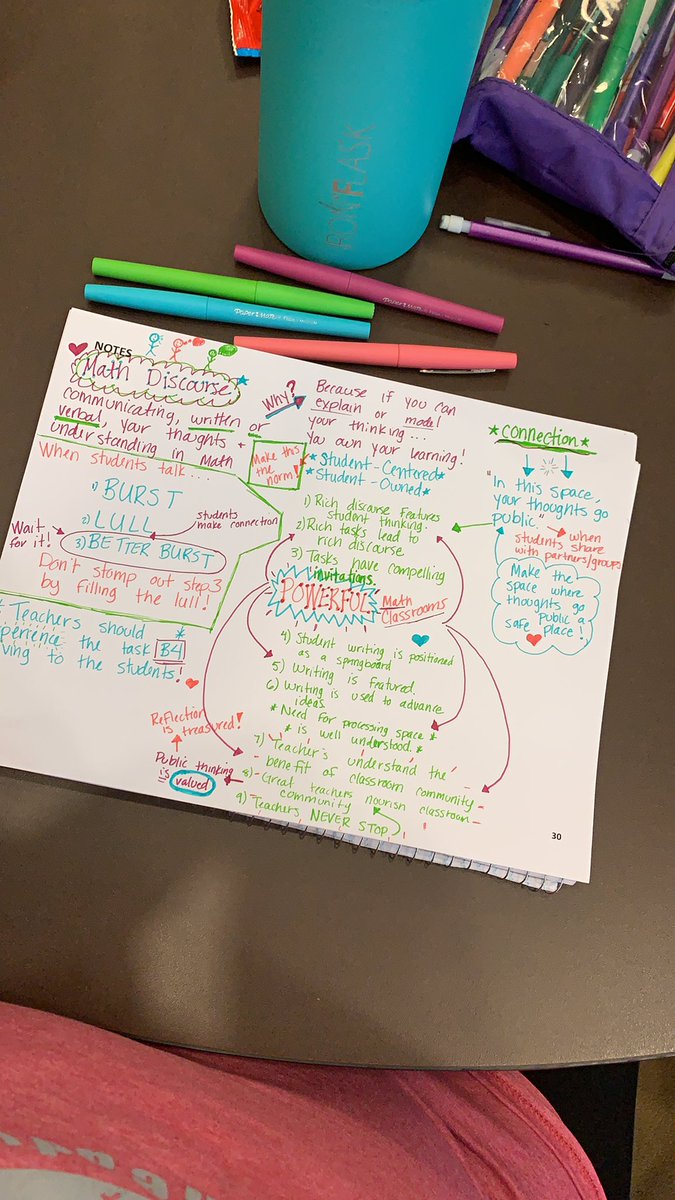 IRONFLASK
Paper Mate
Paper Mate
NOTES
Math Discourse
communicating, written or
verbal, your thoughts +
understanding in Math
Why?
Because if you can
explain or model
your thinking...
You own your learning!
Make this
the norm!
*Student-Centered*
*Student-Owned*
When students talk...
1) BURST
2) LULL
3) BETTER BURST
students
make connection
Wait
for it!
Don't stomp out step 3
by filling the lull!
Teachers should
the task B4
to the students!
1) Rich discourse features
student thinking.
2) Rich tasks lead to
rich discourse.
3) Tasks have compelling
invitations.
POWERFUL
Math
Classrooms
4) Student writing is positioned
as a springboard
5) Writing is featured.
6) Writing is used to advance
ideas.
*Need for processing space*
*is well understood.*
7) Teacher's understand the
benefit of classroom community
8) Great teachers nourish classroom
community
9) Teachers NEVER STOP.
Reflection
is treasured!
Public thinking
is valued
*Connection*
"In this space,
your thoughts go
public."
when
students share
with partners/groups
Make the
space where
thoughts go
public a
safe place!
30